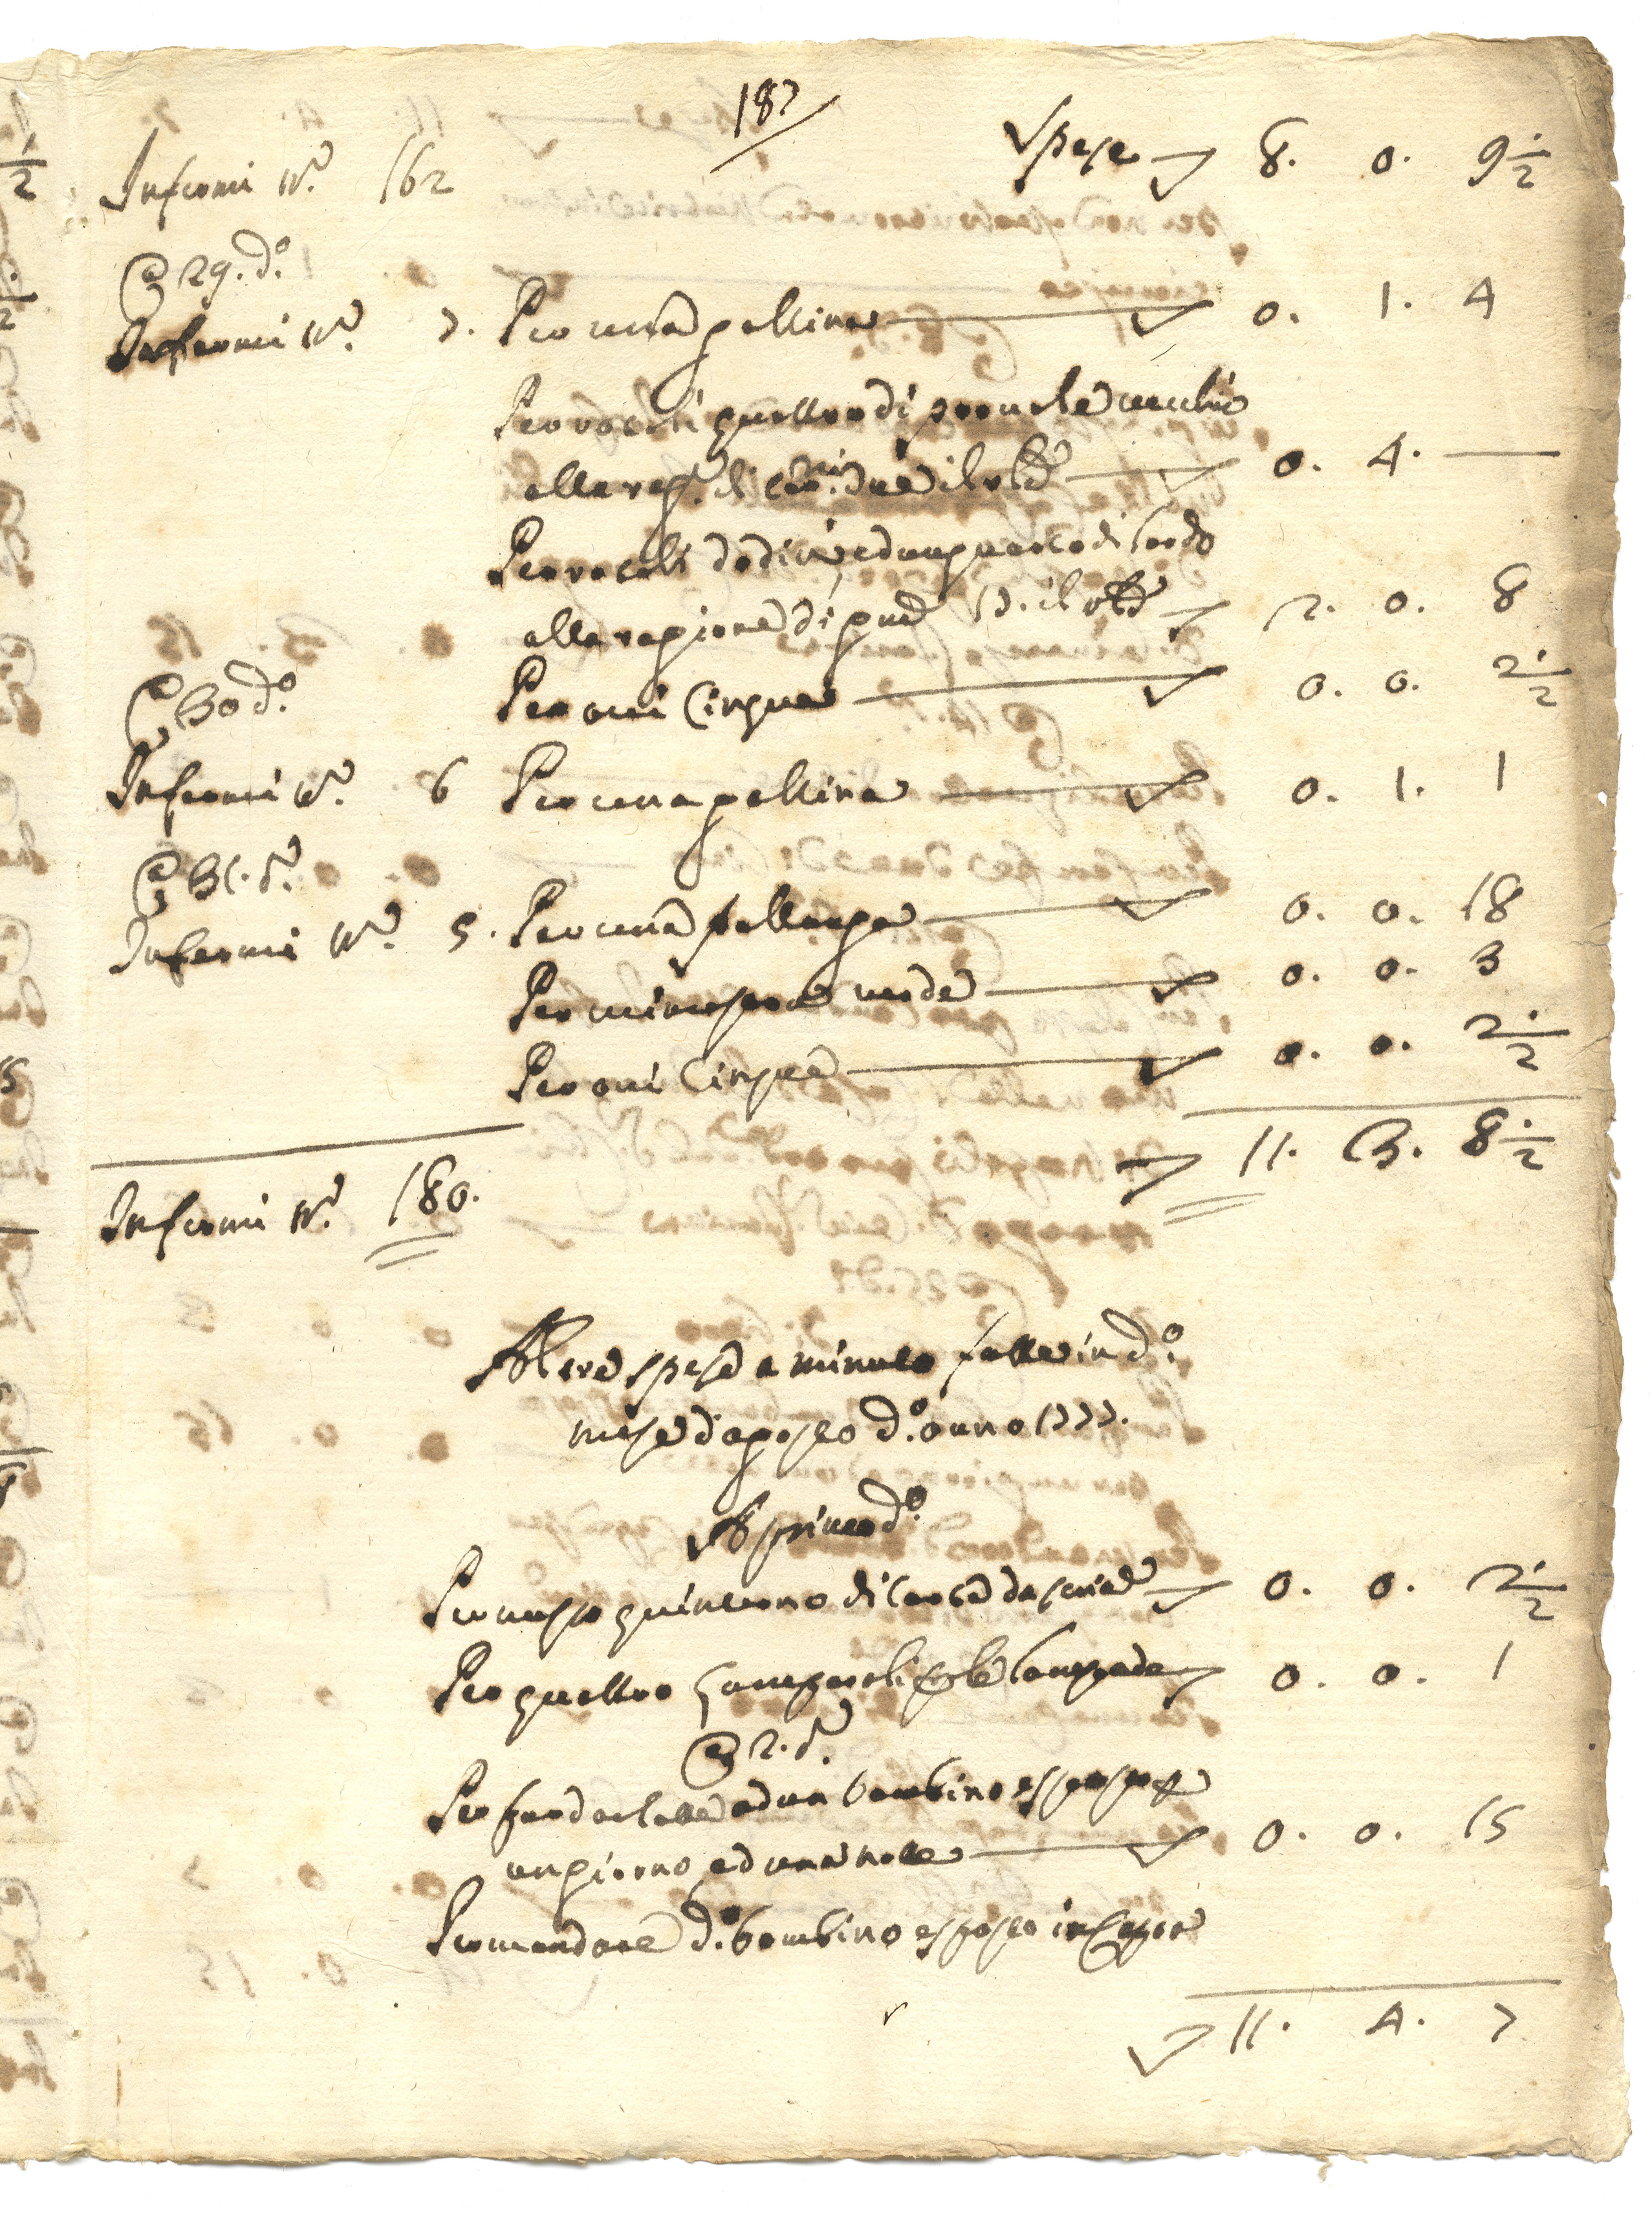 187
Infermi N.º 162 Spese 8. 0. 9 1/2
A 29. d.º
Infermi N.º 7. Per una gallina 0. 1. 4
Per rotoli quattro di provole vecchie
alla rag.e di car.ni due il rlo 0. 4. —
Per rotoli dodici, ed un quarto di lardo
alla ragione di gna 17. il rlo 2. 0. 8
A 30 d.º
Per ovi cinque 0. 0. 2 1/2
Infermi N.º 6 Per una gallina 0. 1. 1
A 31. d.º
Infermi N.º 5. Per una pollanca 0. 0. 18
Per minestra verde 0. 0. 3
Per ovi cinque 0. 0. 2 1/2
11. 3. 8 1/2
Infermi N.º 180.
Altre spese a minuto fatte in d.º
mese d'agosto d.º anno 1777.
A primo d.º
Per mezzo quinterno di carta da scrivere 0. 0. 2 1/2
Per quattro lamparoli per le lampade 0. 0. 1
A 2. d.º
Per far dar latte ad un bambino esposto per
un giorno, ed una notte 0. 0. 15
Per mandare d.º bambino esposto in
11. 4. 7